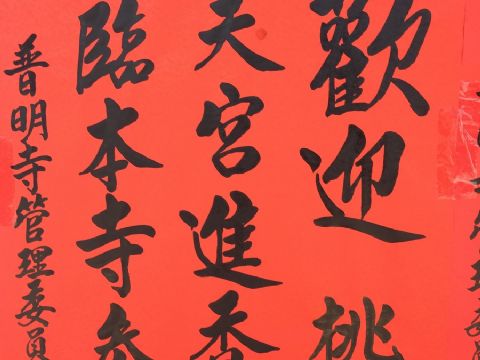 歡迎桃
天宮進香
臨本寺參
普明寺管理委員